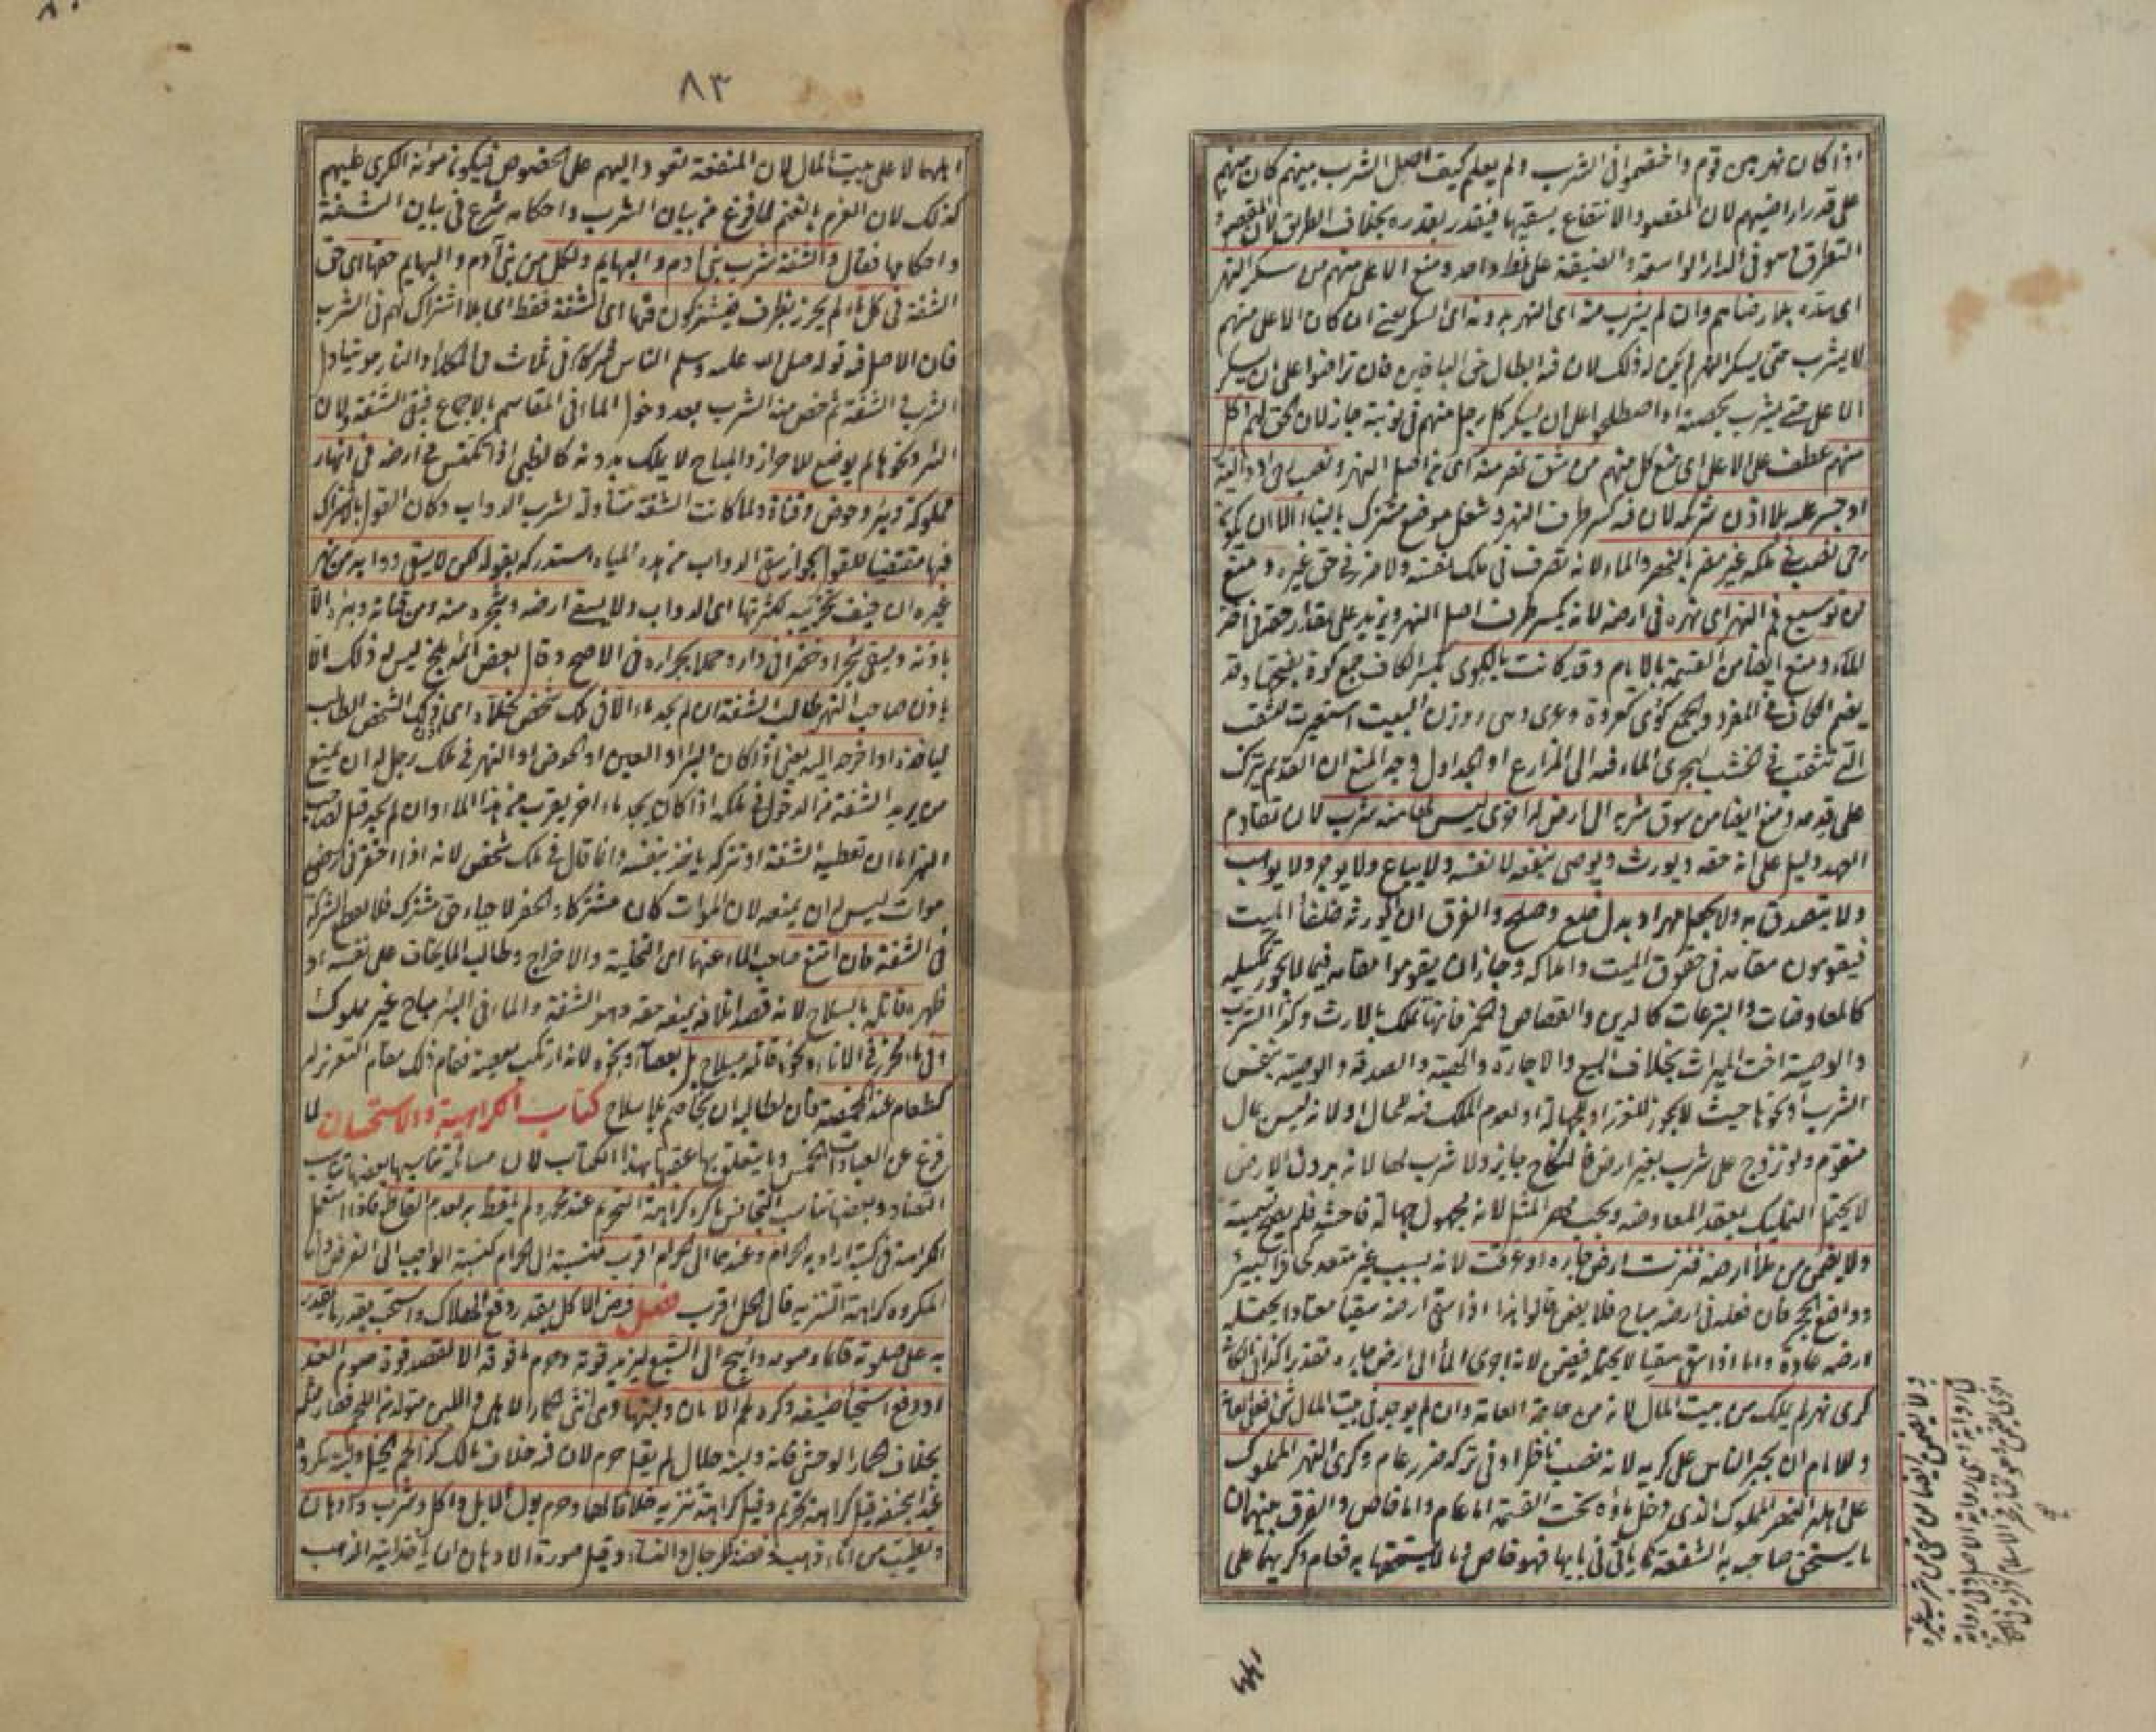 اذا كان نهر بين قوم واختصموا في الشرب ولم يعلم كيف اصل الشرب بينهم كان بينهم
على قدر اراضيهم لان المقصود الانتفاع بسقيها فيقدر بقدره بخلاف الطريق لان المقصود
التطرق وهو في الدار الواسعة والضيقة على نمط واحد ومنع الاعلى منهم من سكر النهر
اى سده بلا رضاهم وان لم يشرب منه اى النهر بدونه اى السكر يعنى ان كان الاعلى منهم
لا يشرب حتى يسكر النهر لم يكن له ذلك لان فيه ابطال حق الباقين فان تراضوا على ان يسكر
الاعلى حتى يشرب بحصته او اصطلحوا على ان يسكر كل رجل منهم في نوبته جاز لان الحق لهم
منهم عطف على الاعلى اى منع كل منهم من شق نهر منه اى من اصل النهر ونصب رحى او دالية
او جسر عليه بلا اذن شريكه لان فيه كسر طرف النهر وشغل موضع مشترك بالبناء الا ان يكون
رحى نصب في ملكه غير مضر بالنهر والماء لانه تصرف في ملك نفسه ولا ضرر في حق غيره ومنع
من توسيع فم النهر اى نهره في ارضه لانه يكسر طرف اصل النهر ويزيد على مقدار حقه في اخذ
الماء ومنع ايضا من القسمة بالايام وقد كانت بالكوى بكسر الكاف جمع كوة بفتحها وقد
يضم الكاف في المفرد والجمع كوى كعروة وعرى وهى روزن البيت استعيرت للثقب
التي تثقب في الخشب ليجرى الماء فيه الى المزارع او الجداول وجه المنع ان القديم يترك
على قدمه ومنع ايضا من سوق شربه الى ارض له اخرى ليس لها منه شرب لان تقادم
العهد دليل على انه حقه ويورث ويوصى بنفعه لا نفسه ولا يباع ولا يوجر ولا يوهب
ولا يتصدق به ولا يجعل مهرا وبدل خلع وصلح والفرق ان الورثة خلفاء الميت
فيقومون مقامه في حقوق الميت واملاكه وجاز ان يقوموا مقامه فيما لا يجوز تمليكه
كالمعاوضات والتبرعات كالدين والقصاص والخمر فانها تملك بالارث وكذا الشرب
والوصية اخت الميراث بخلاف البيع والاجارة والهبة والصدقة والوصية بنفس
الشرب ونحوها حيث لا يجوز للغرر او لجهالة او لعدم الملك فيه للحال او لانه ليس بمال
متقوم ولو تزوج على شرب بغير ارض فالنكاح جايز ولا شرب لها لانه بدون الارض
لا يحتمل التمليك بعقد المعاوضه ويجب مهر المثل لانه مجهول جهالة فاحشه فلم يصح تسميته
ولا يضمن من ملأ ارضه فنزت ارض جاره او غرقت لانه بسبب غير متعد كحافر البئر
وواضع الحجر فان فعله في ارضه مباح فلا يضمن قالوا هذا اذا سقى ارضه سقيا معتادا يحتمله
ارضه عادة واما اذا سقى سقيا لا يحتمله فيضمن لانه اجرى الماء الى ارض جاره تقديرا كذا في الكافى
كرى نهر لم يملك من بيت المال لانه من حاجة العامة وان لم يوجد في بيت المال شئ فعلى العامة
وللامام ان يجبر الناس على كريه لانه نصب ناظرا وفي تركه ضرر عام وكرى النهر المملوك
على اهله النهر المملوك الذى دخل ماؤه تحت القسمة اما عام واما خاص والفرق بينهما ان
ما يستحق صاحبه به الشفعة كما ياتى في بابها فهو خاص وما لا يستحقها به فعام وكريهما على
٨٣
اهلهما لا على بيت المال لان المنفعة تعود اليهم على الخصوص فيكون مؤنة الكرى عليهم
كذلك لان الغرم بالغنم لما فرغ من بيان الشرب واحكامه شرع في بيان الشفة
واحكامها فقال والشفة شرب بنى ادم والبهايم ولكل من بنى آدم والبهايم حقها اى حق
الشفة في كل ماء لم يحرز بظرف فيشتركون فيها اى الشفة فقط اى بلا اشتراك لهم في الشرب
فان الاصل فيه قوله صلى الله عليه وسلم الناس شركاء في ثلاث في الماء والكلاء والنار هو يتناول
الشرب والشفة ثم خص منه الشرب بعد دخول الماء في المقاسم بالاجماع فبقى الشفة ولان
البئر ونحوها لم يوضع للاحراز والمباح لا يملك بدونه كالظبى اذا تكنس في ارضه في انهار
مملوكة وبئر وحوض وقناة ولما كانت الشفة متناولة لشرب الدواب وكان القول بالاشتراك
فيها مقتضيا للقول بجواز سقى الدواب من هذه المياه استدركه بقوله لكن لا يسقى دوابه من نهر
غيره ان خيف تخريبه لكثرتها اى الدواب ولا يسقى ارضه وشجره منه ومن قناته وبئره الا
باذنه ويسقى شجرا وخضرا في داره حملا بجراره في الاصح وقال بعض ائمة بلخ ليس له ذلك الا
باذن صاحب النهر طالب الشفة ان لم يجد ماء الا في ملك شخص خلاه اى ذلك الشخص الطالب
لياخذه او اخرجه اليه يعنى اذا كان البئر او العين او الحوض او النهر في ملك رجل له ان يمنع
من يريد الشفة من الدخول في ملكه اذا كان يجد ماء اخر بقرب من هذا الماء وان لم يجد قيل لصاحب
النهر اما ان تعطيه الشفة او تتركه ياخذ بنفسه وانما قال في ملك شخص لانه اذا احتفر في ارض
موات ليس له ان يمنعه لان الموات كان مشتركا والحفر لاحياء حق مشترك فلا يقطع الشركة
في الشفة فان امتنع صاحب الماء عنها اى التخلية والاخراج وطالب الماء يخاف على نفسه او
ظهره قاتله بالسلاح لانه قصد اتلافه بمنعه حقه وهو الشفة والماء في البئر مباح غير مملوك
وفي ماء محرز في الاناء ونحوه قاتله بلا سلاح بل بعصا ونحوه لانه ارتكب معصية فقام ذلك مقام التعزير له
كطعام عند المخمصة فان لطالبه ان يخاصم بلا سلاح كتاب الكراهية والاستحسان لما
فرغ عن العبادات الخمس وما يتعلق بها عقبها بهذا الكتاب لان مسائله تناسبها بعضها تناسب
التضاد وبعضها تناسب التجانس ما كره كراهة التحريم عند محمد ولم يلفظ به لعدم القاطع فاذا استعمل
الكراهة في كتبه اراد به الحرام وعندهما الى الحرام اقرب فنسبته الى الحرام كنسبة الواجب الى الفرض واما
المكروه كراهة التنزيه فالى الحل اقرب فصل فرض الاكل بقدر دفع الهلاك واستحب بقدر ما يقدر
به على صلوته قائما وصومه وابيح الى الشبع ليزيد قوته وحرم ما فوقه الا لقصد قوة صوم الغد
او دفع استحياء ضيفه وكره لحم الاتان ولبنها وهى انثى الحمار الاهلى واللبن متولد من اللحم فصار مثله
بخلاف الحمار الوحشى فانه ولبنه حلال لم يقل حرم لان فيه خلاف مالك كذا لحم الخيل ولبنه مكروه
عند ابى حنيفة قيل كراهة تحريم وقيل كراهة تنزيه خلافا لهما وحرم بول الابل واكل وشرب وادهان
وتطيب من اناء ذهب وفضة للرجال والنساء وقيل صورة الادهان ان ياخذ آنية الذهب